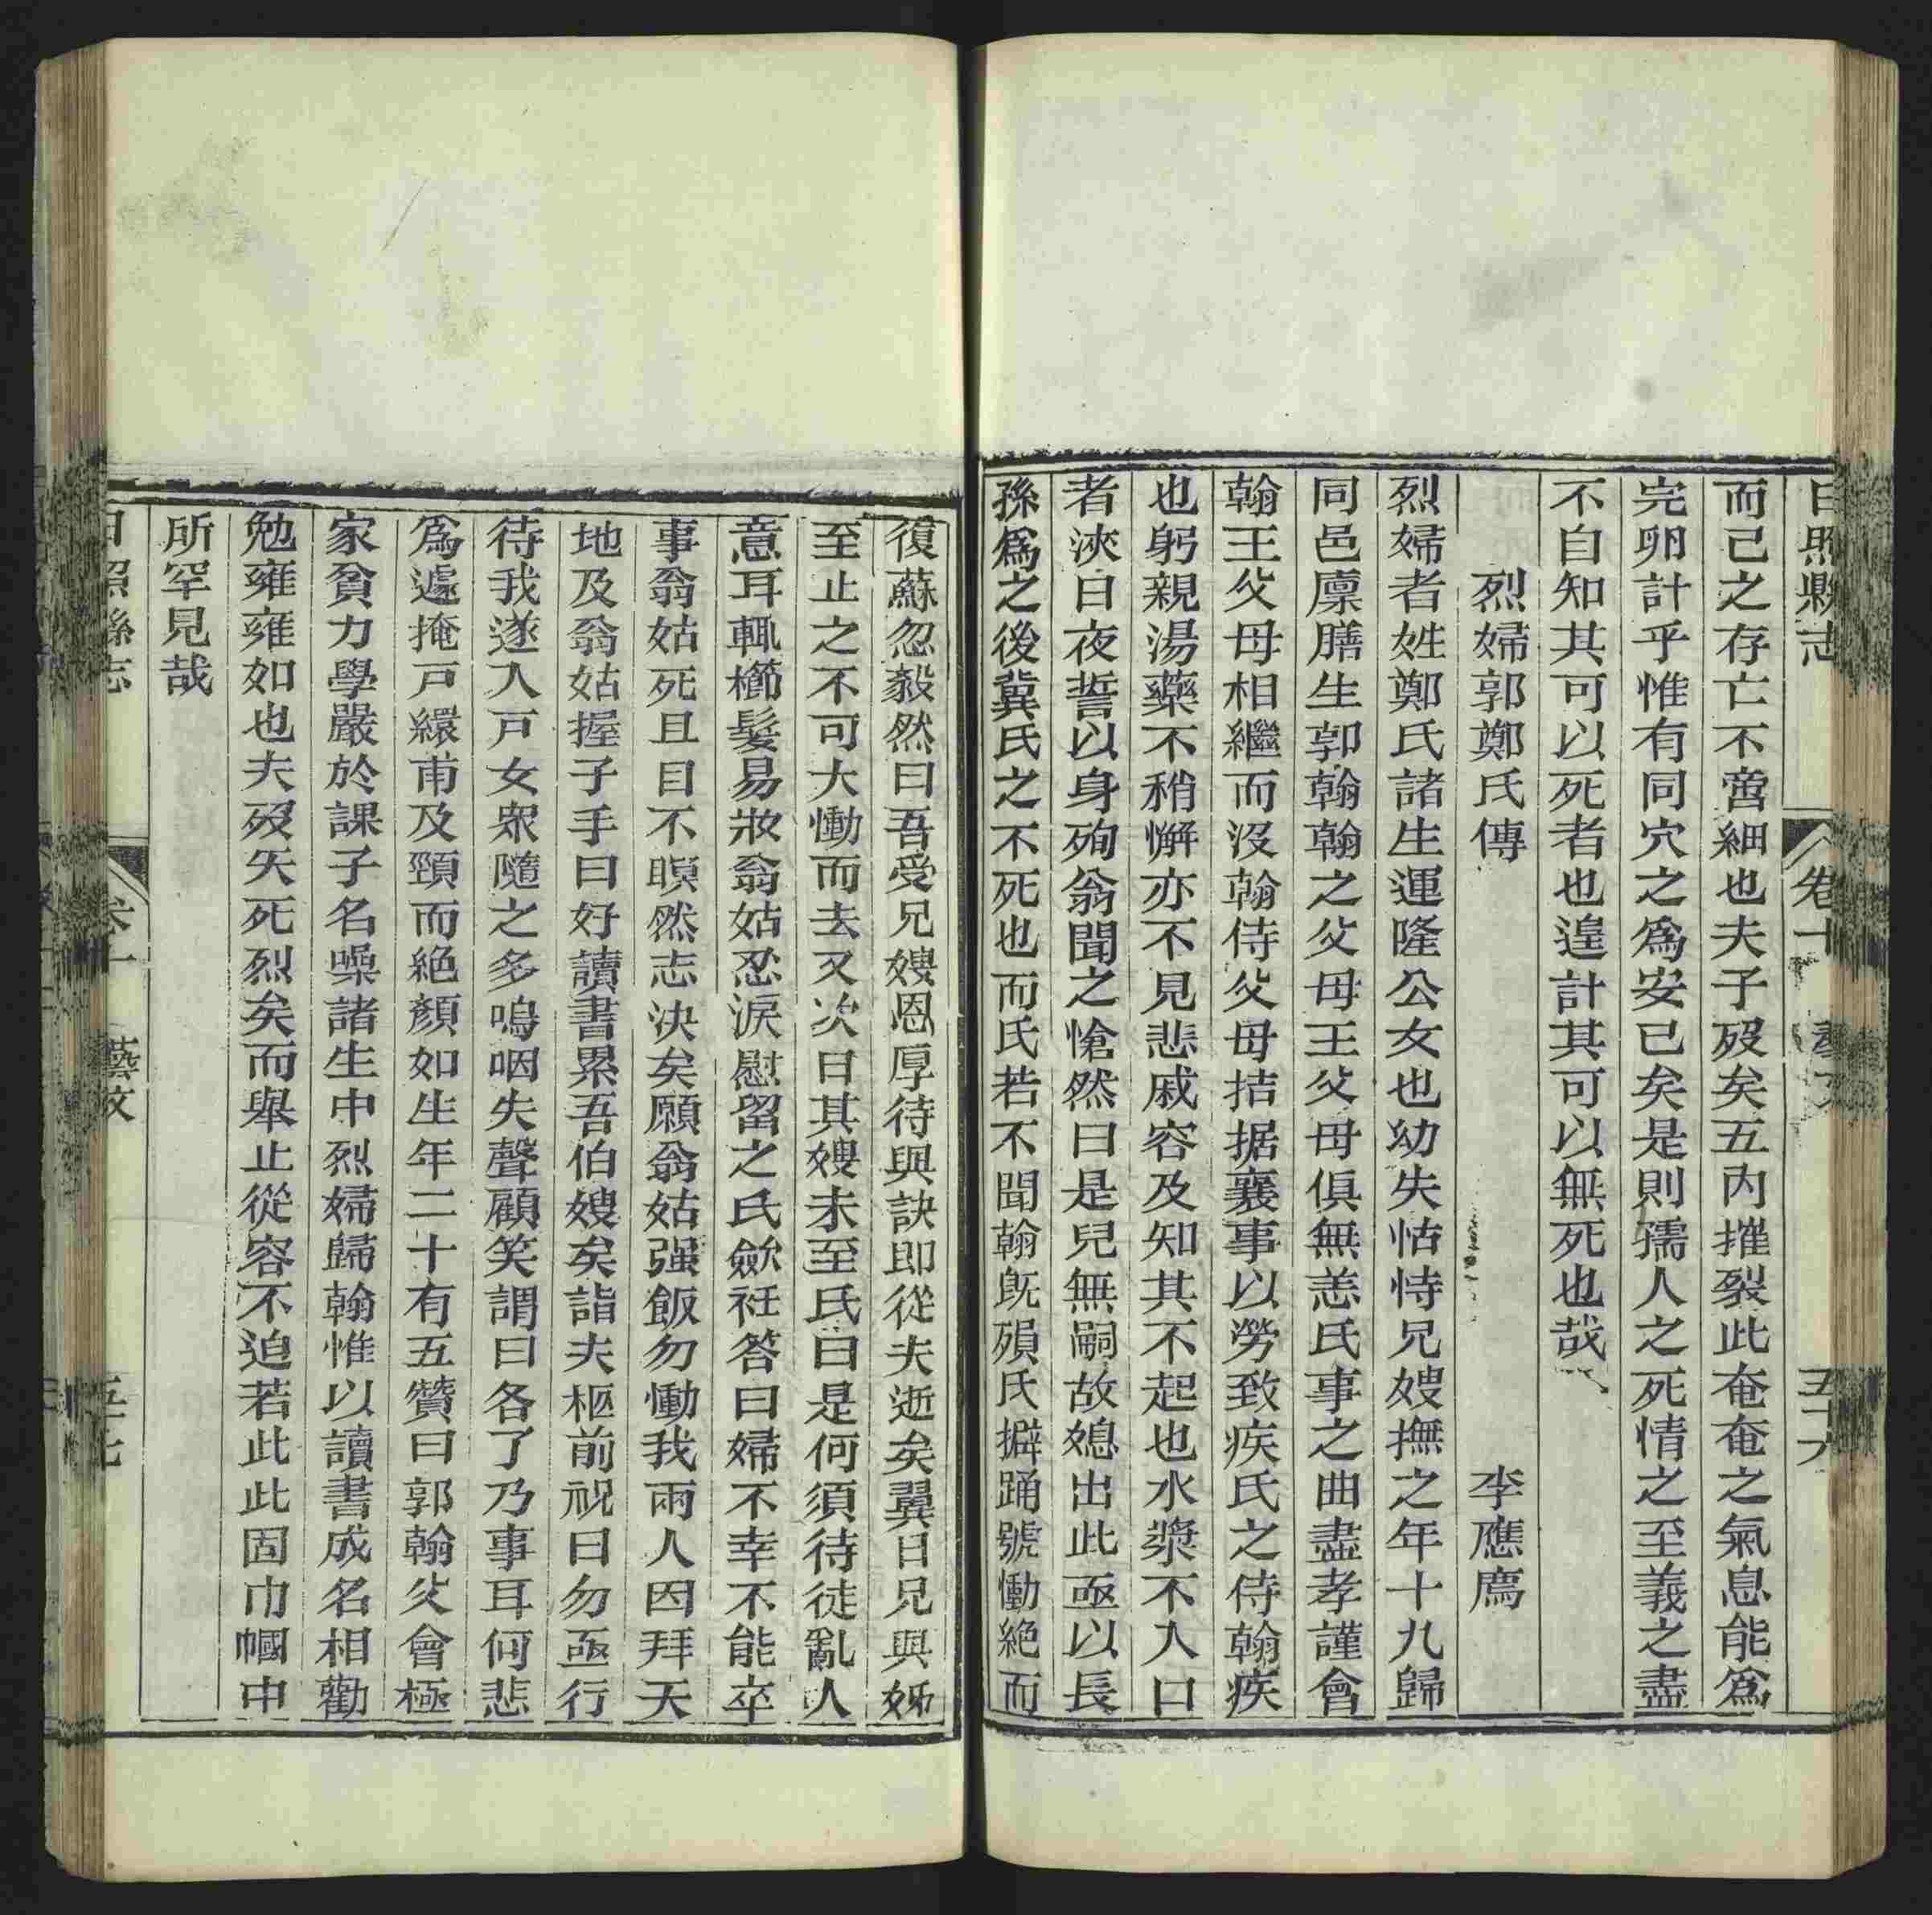 日照縣志
卷十
藝文
五十六
而己之存亡不啻細也夫子歿矣五內摧裂此奄奄之氣息能爲
完卵計乎惟有同穴之爲安已矣是則孺人之死情之至義之盡
不自知其可以死者也遑計其可以無死也哉
烈婦郭鄭氏傳
李應廌
烈婦者姓鄭氏諸生運隆公女也幼失怙恃兄嫂撫之年十九歸
同邑廩膳生郭翰翰之父母王父母俱無恙氏事之曲盡孝謹會
翰王父母相繼而沒翰侍父母拮据襄事以勞致疾氏之侍翰疾
也躬親湯藥不稍懈亦不見悲戚容及知其不起也水漿不入口
者浹日夜誓以身殉翁聞之愴然曰是兒無嗣故媳出此亟以長
孫爲之後冀氏之不死也而氏若不聞翰旣殞氏擗踊號慟絶而
復蘇忽毅然曰吾受兄嫂恩厚待與訣即從夫逝矣翼日兄與姊
至止之不可大慟而去又次日其嫂未至氏曰是何須待徒亂人
意耳輒櫛髮易妝翁姑忍淚慰留之氏歛衽答曰婦不幸不能卒
事翁姑死且目不瞑然志決矣願翁姑强飯勿慟我兩人因拜天
地及翁姑握子手曰好讀書累吾伯嫂矣詣夫柩前祝曰勿亟行
待我遂入戸女衆隨之多嗚咽失聲顧笑謂曰各了乃事耳何悲
爲遽掩戸繯甫及頸而絶顏如生年二十有五贊曰郭翰父會極
家貧力學嚴於課子名噪諸生中烈婦歸翰惟以讀書成名相勸
勉雍雍如也夫歿矢死烈矣而舉止從容不迫若此此固巾幗中
所罕見哉
日照縣志
卷十
藝文
五十七